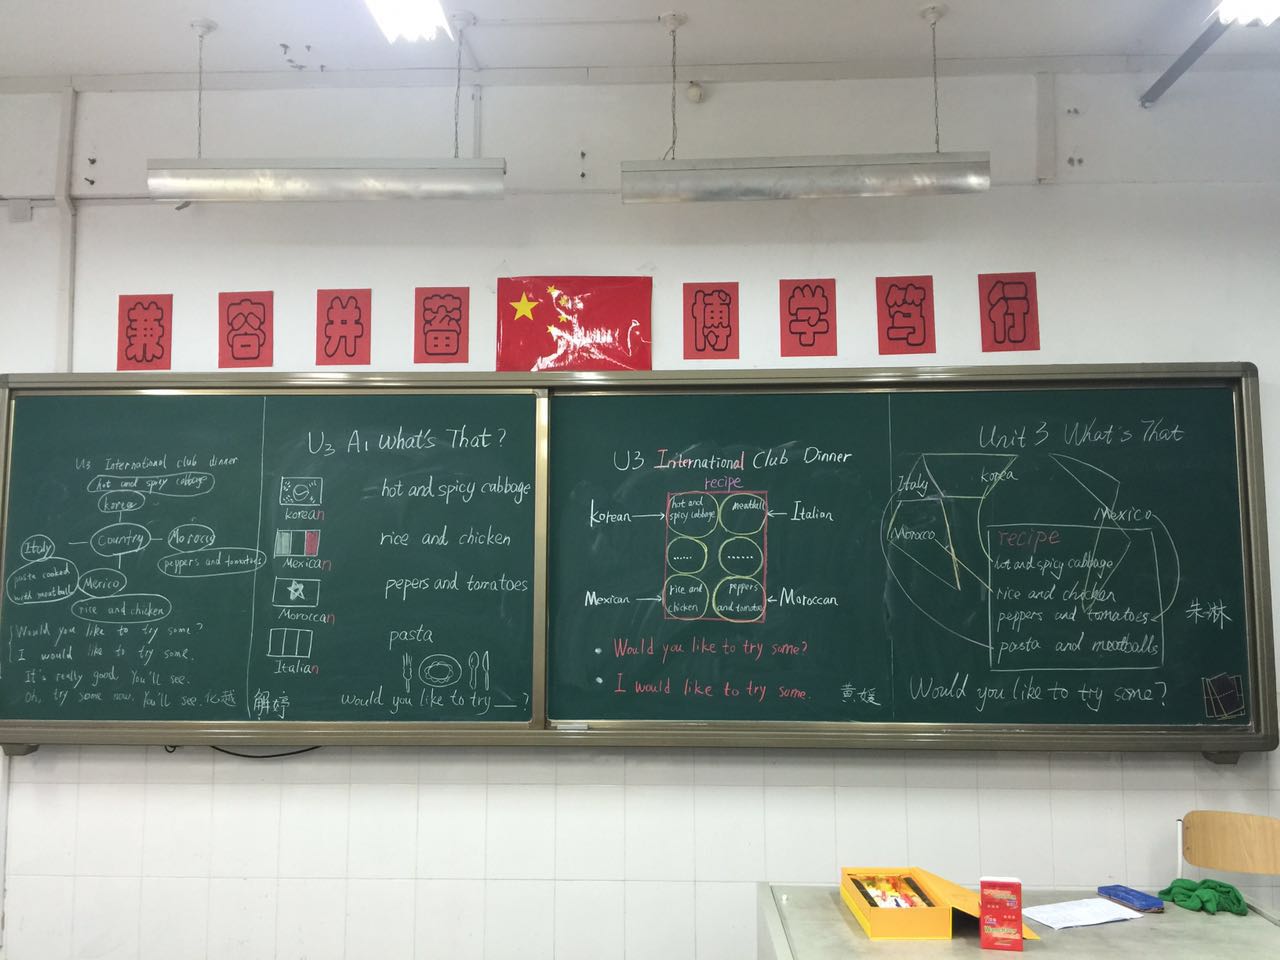 兼容并蓄
博学笃行
U3 International club dinner
hot and spicy cabbage
korea
Italy
Country
Morocco
pasta cooked
with meatball
Mexico
peppers and tomatoes
rice and chicken
Would you like to try some?
I would like to try some.
It's really good. You'll see.
Oh, try some now. You'll see.
U3 A1 What's That?
korean
hot and spicy cabbage
Mexican
rice and chicken
Moroccan
pepers and tomatoes
Italian
pasta
would you like to try __?
解婷
U3 International Club Dinner
recipe
Korean
hot and
spicy cabbage
meatball
Italian
......
......
Mexican
rice and
chicken
peppers
and tomatoes
Moroccan
Would you like to try some?
I would like to try some.
黄媛
Unit 3 What's That
Italy
korea
Morocco
Mexico
recipe
hot and spicy cabbage
rice and chicken
peppers and tomatoes
pasta and meatballs
朱淋
Would you like to try some?